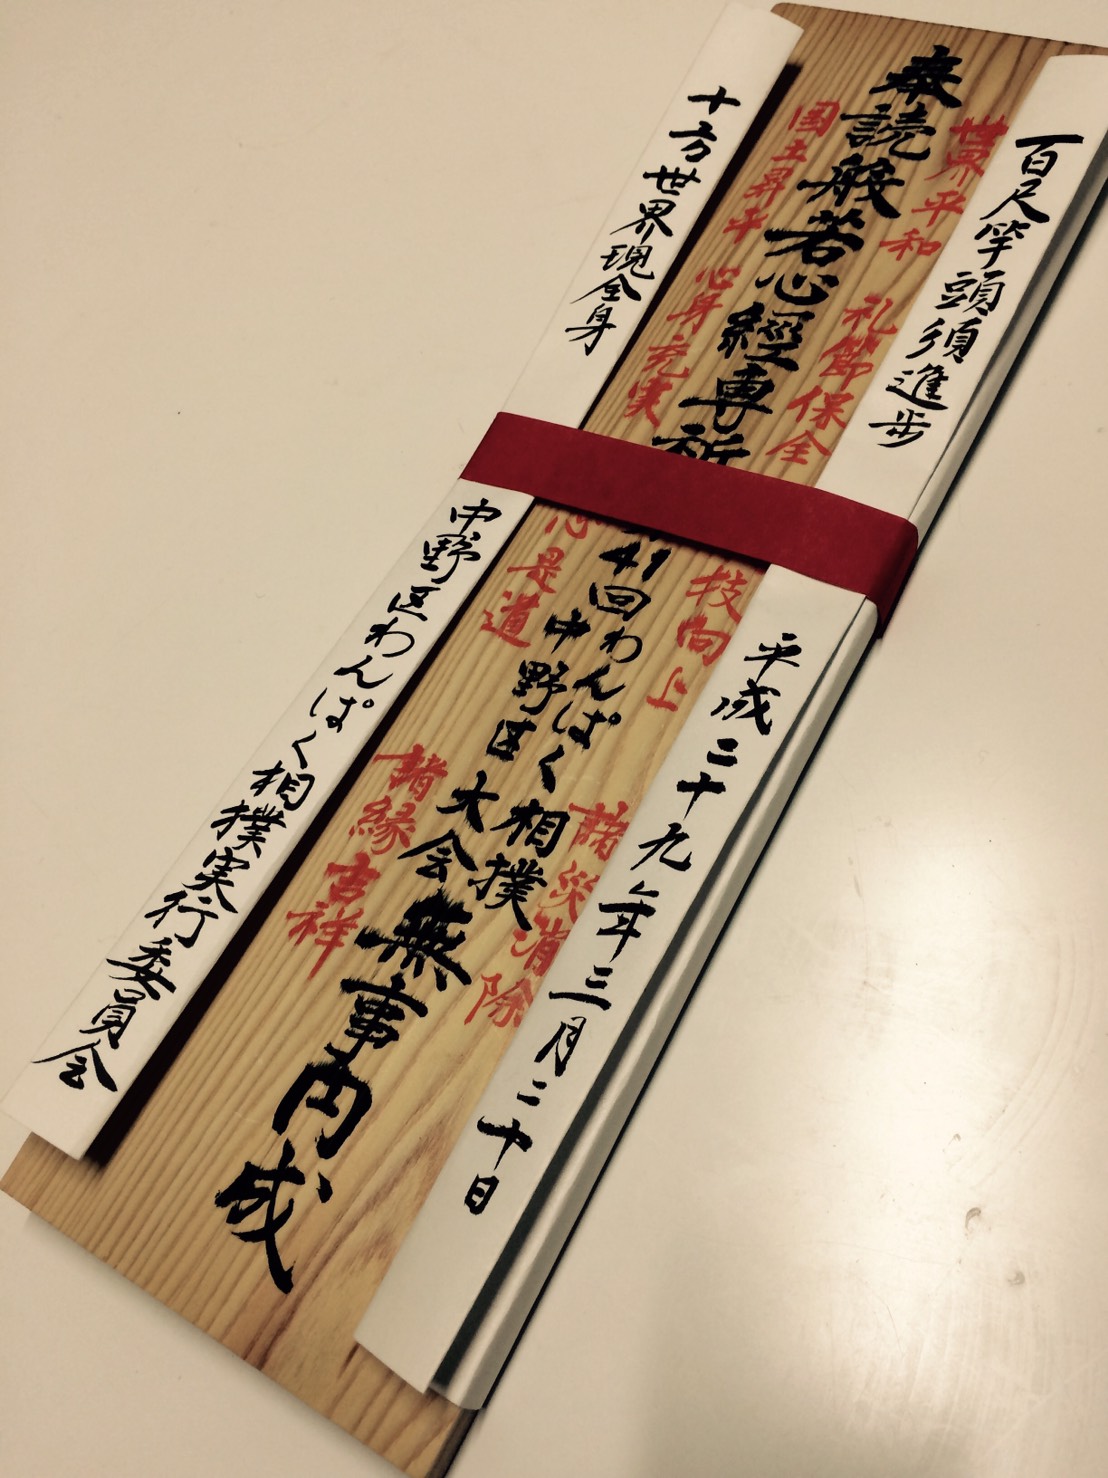 百尺竿頭須進歩
平成二十九年三月二十日
世界平和
礼節保全
技向上
諸災消除
奉読般若心經専祈
41回わんぱく相撲
中野区大会
無事円成
国土昇平
心身充実
心是道
諸縁吉祥
十方世界現全身
中野区わんぱく相撲実行委員会